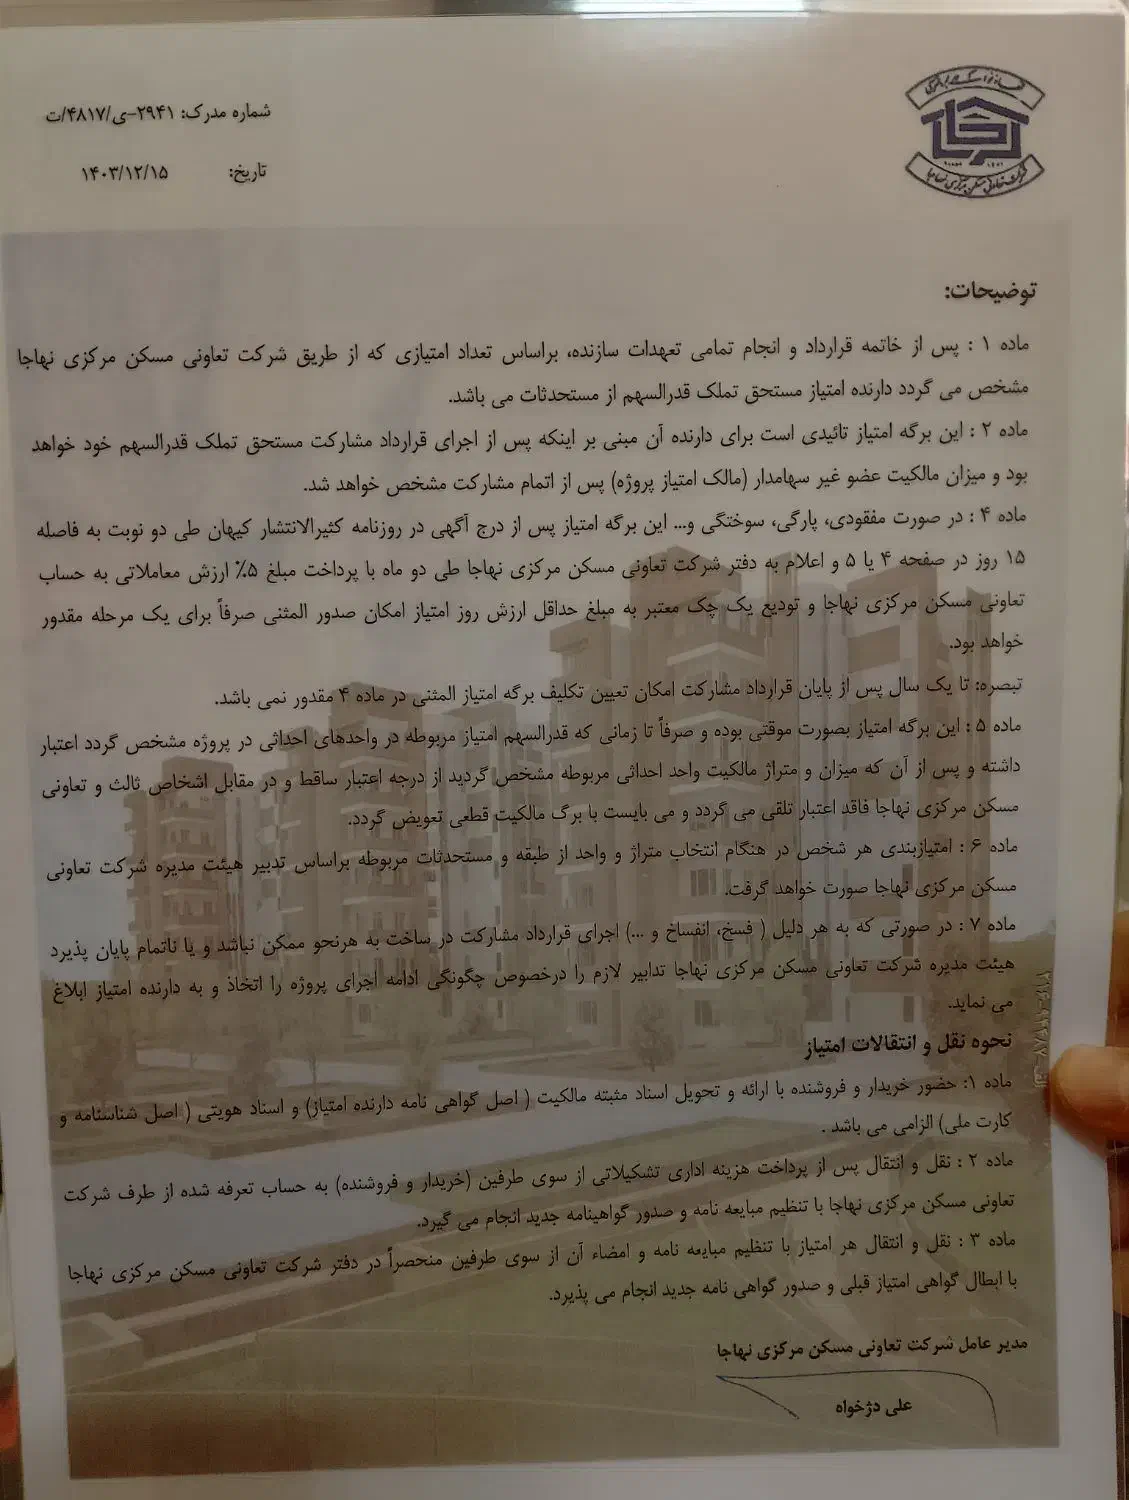 شماره مدرک: ۲۹۴۱-ی/۴۸۱۷/ت
تاریخ: ۱۴۰۳/۱۲/۱۵
توضیحات:
ماده ۱ : پس از خاتمه قرارداد و انجام تمامی تعهدات سازنده، براساس تعداد امتیازی که از طریق شرکت تعاونی مسکن مرکزی نهاجا
مشخص می گردد دارنده امتیاز مستحق تملک قدرالسهم از مستحدثات می باشد.
ماده ۲ : این برگه امتیاز تائیدی است برای دارنده آن مبنی بر اینکه پس از اجرای قرارداد مشارکت مستحق تملک قدرالسهم خود خواهد
بود و میزان مالکیت عضو غیر سهامدار (مالک امتیاز پروژه) پس از اتمام مشارکت مشخص خواهد شد.
ماده ۴ : در صورت مفقودی، پارگی، سوختگی و... این برگه امتیاز پس از درج آگهی در روزنامه کثیرالانتشار کیهان طی دو نوبت به فاصله
۱۵ روز در صفحه ۴ یا ۵ و اعلام به دفتر شرکت تعاونی مسکن مرکزی نهاجا طی دو ماه با پرداخت مبلغ ۵% ارزش معاملاتی به حساب
تعاونی مسکن مرکزی نهاجا و تودیع یک چک معتبر به مبلغ حداقل ارزش روز امتیاز امکان صدور المثنی صرفاً برای یک مرحله مقدور
خواهد بود.
تبصره: تا یک سال پس از پایان قرارداد مشارکت امکان تعیین تکلیف برگه امتیاز المثنی در ماده ۴ مقدور نمی باشد.
ماده ۵ : این برگه امتیاز بصورت موقتی بوده و صرفاً تا زمانی که قدرالسهم امتیاز مربوطه در واحدهای احداثی در پروژه مشخص گردد اعتبار
داشته و پس از آن که میزان و متراژ مالکیت واحد احداثی مربوطه مشخص گردید از درجه اعتبار ساقط و در مقابل اشخاص ثالث و تعاونی
مسکن مرکزی نهاجا فاقد اعتبار تلقی می گردد و می بایست با برگ مالکیت قطعی تعویض گردد.
ماده ۶ : امتیازبندی هر شخص در هنگام انتخاب متراژ و واحد از طبقه و مستحدثات مربوطه براساس تدبیر هیئت مدیره شرکت تعاونی
مسکن مرکزی نهاجا صورت خواهد گرفت.
ماده ۷ : در صورتی که به هر دلیل ( فسخ، انفساخ و ...) اجرای قرارداد مشارکت در ساخت به هرنحو ممکن نباشد و یا ناتمام پایان پذیرد
هیئت مدیره شرکت تعاونی مسکن مرکزی نهاجا تدابیر لازم را درخصوص چگونگی ادامه اجرای پروژه را اتخاذ و به دارنده امتیاز ابلاغ
می نماید.
نحوه نقل و انتقالات امتیاز
ماده ۱: حضور خریدار و فروشنده با ارائه و تحویل اسناد مثبته مالکیت ( اصل گواهی نامه دارنده امتیاز) و اسناد هویتی ( اصل شناسنامه و
کارت ملی) الزامی می باشد .
ماده ۲ : نقل و انتقال پس از پرداخت هزینه اداری تشکیلاتی از سوی طرفین (خریدار و فروشنده) به حساب تعرفه شده از طرف شرکت
تعاونی مسکن مرکزی نهاجا با تنظیم مبایعه نامه و صدور گواهینامه جدید انجام می گیرد.
ماده ۳ : نقل و انتقال هر امتیاز با تنظیم مبایعه نامه و امضاء آن از سوی طرفین منحصراً در دفتر شرکت تعاونی مسکن مرکزی نهاجا
با ابطال گواهی امتیاز قبلی و صدور گواهی نامه جدید انجام می پذیرد.
مدیر عامل شرکت تعاونی مسکن مرکزی نهاجا
علی دژخواه